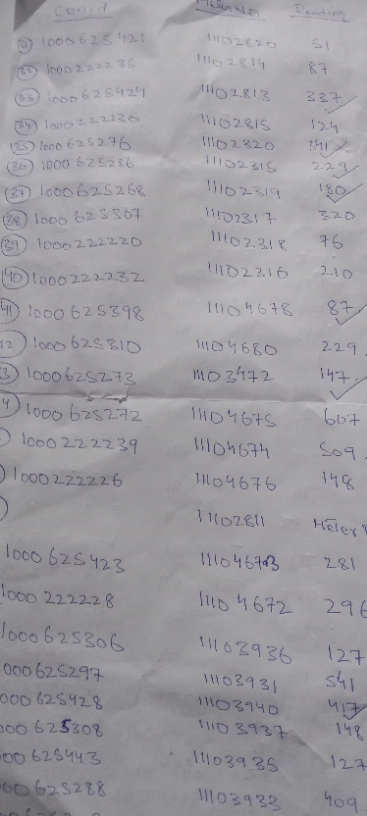 ConId MeterNo Reading
31 1000625421 11102820 51
32 1000222236 11102814 87
33 1000625424 11102813 337
34 1000222230 11102815 124
35 1000625276 11102320 341
36 1000625236 11102315 229
37 1000625268 11102319 180
38 1000625307 11102317 320
39 1000222220 11102318 76
40 1000222232 11102316 210
41 1000625398 11104678 87
42 1000625310 11104680 229
3 1000625273 11103472 147
4 1000625272 11104675 607
1000222239 11104674 509
1000222226 11104676 148
11102811 Meter
1000625423 11104673 281
1000222228 11104672 296
1000625306 11103936 127
000625297 11103931 541
000625428 11103940 417
000625308 11103937 148
000625443 11103935 127
000625288 11103933 409